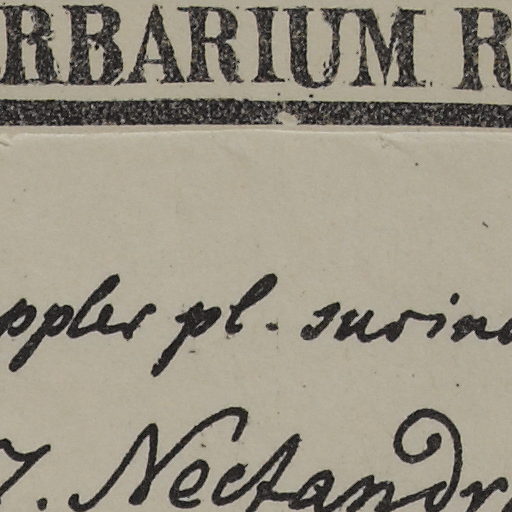 RBARIUM R
ppler pl. surina
7. Nectandr